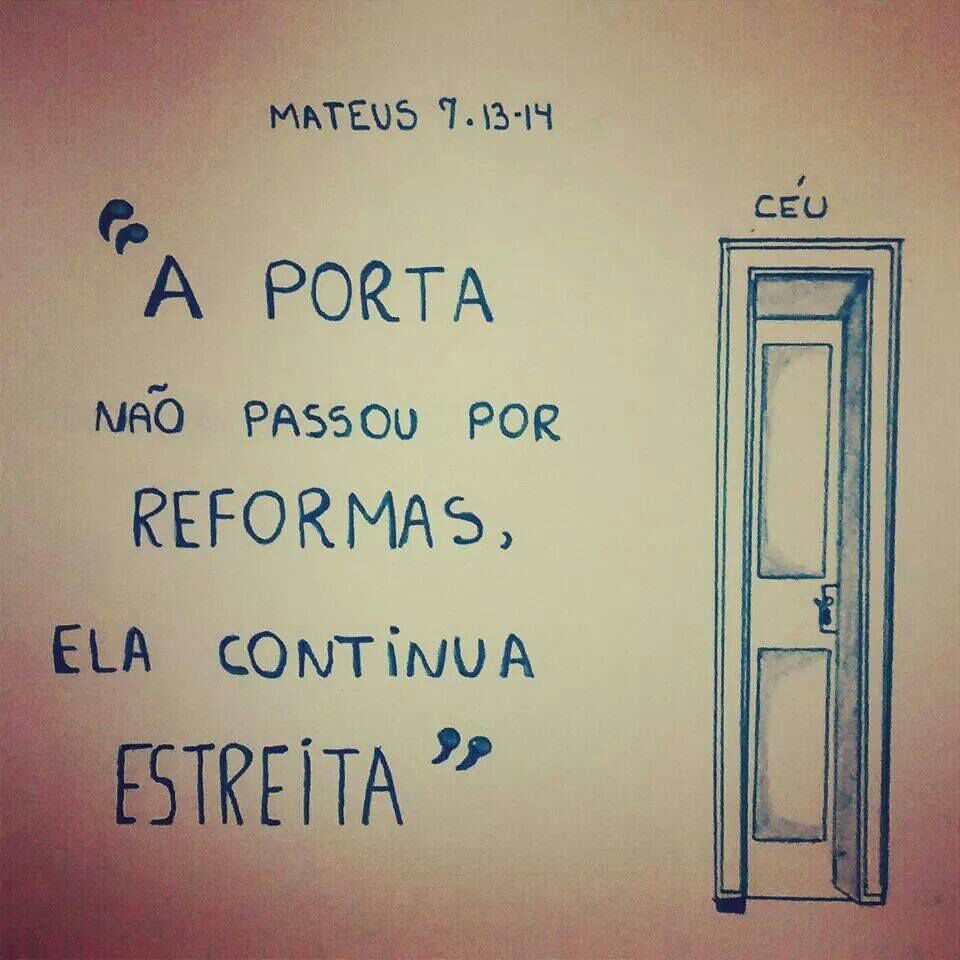 MATEUS 7.13-14
CÉU
"A PORTA
NÃO PASSOU POR
REFORMAS,
ELA CONTINUA
ESTREITA"